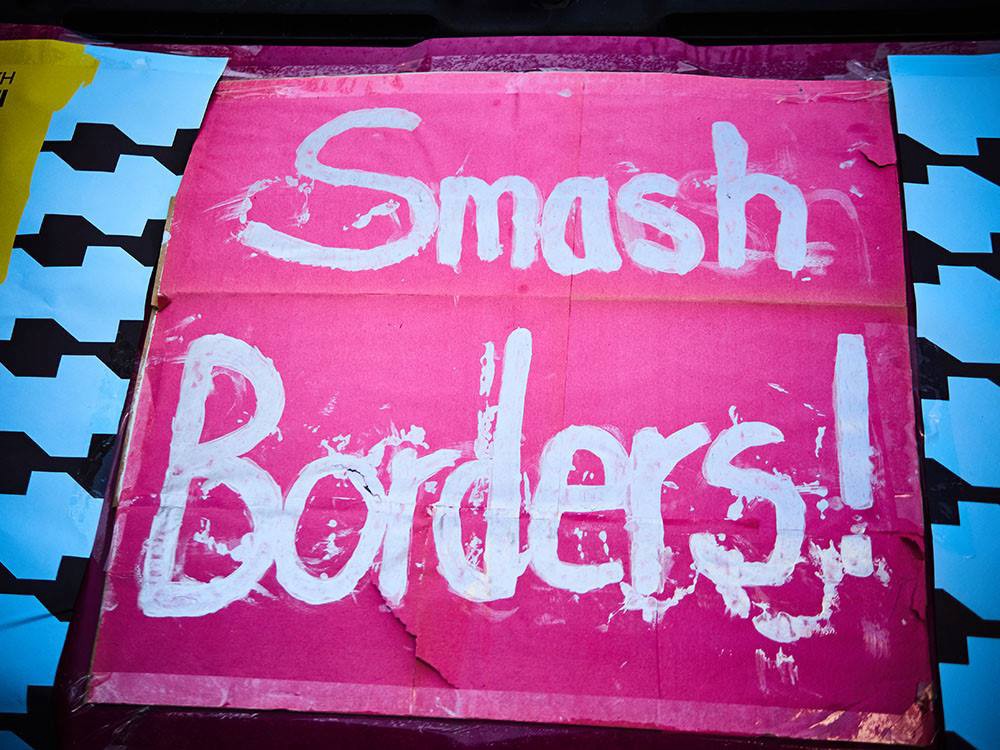 Smash
Borders!